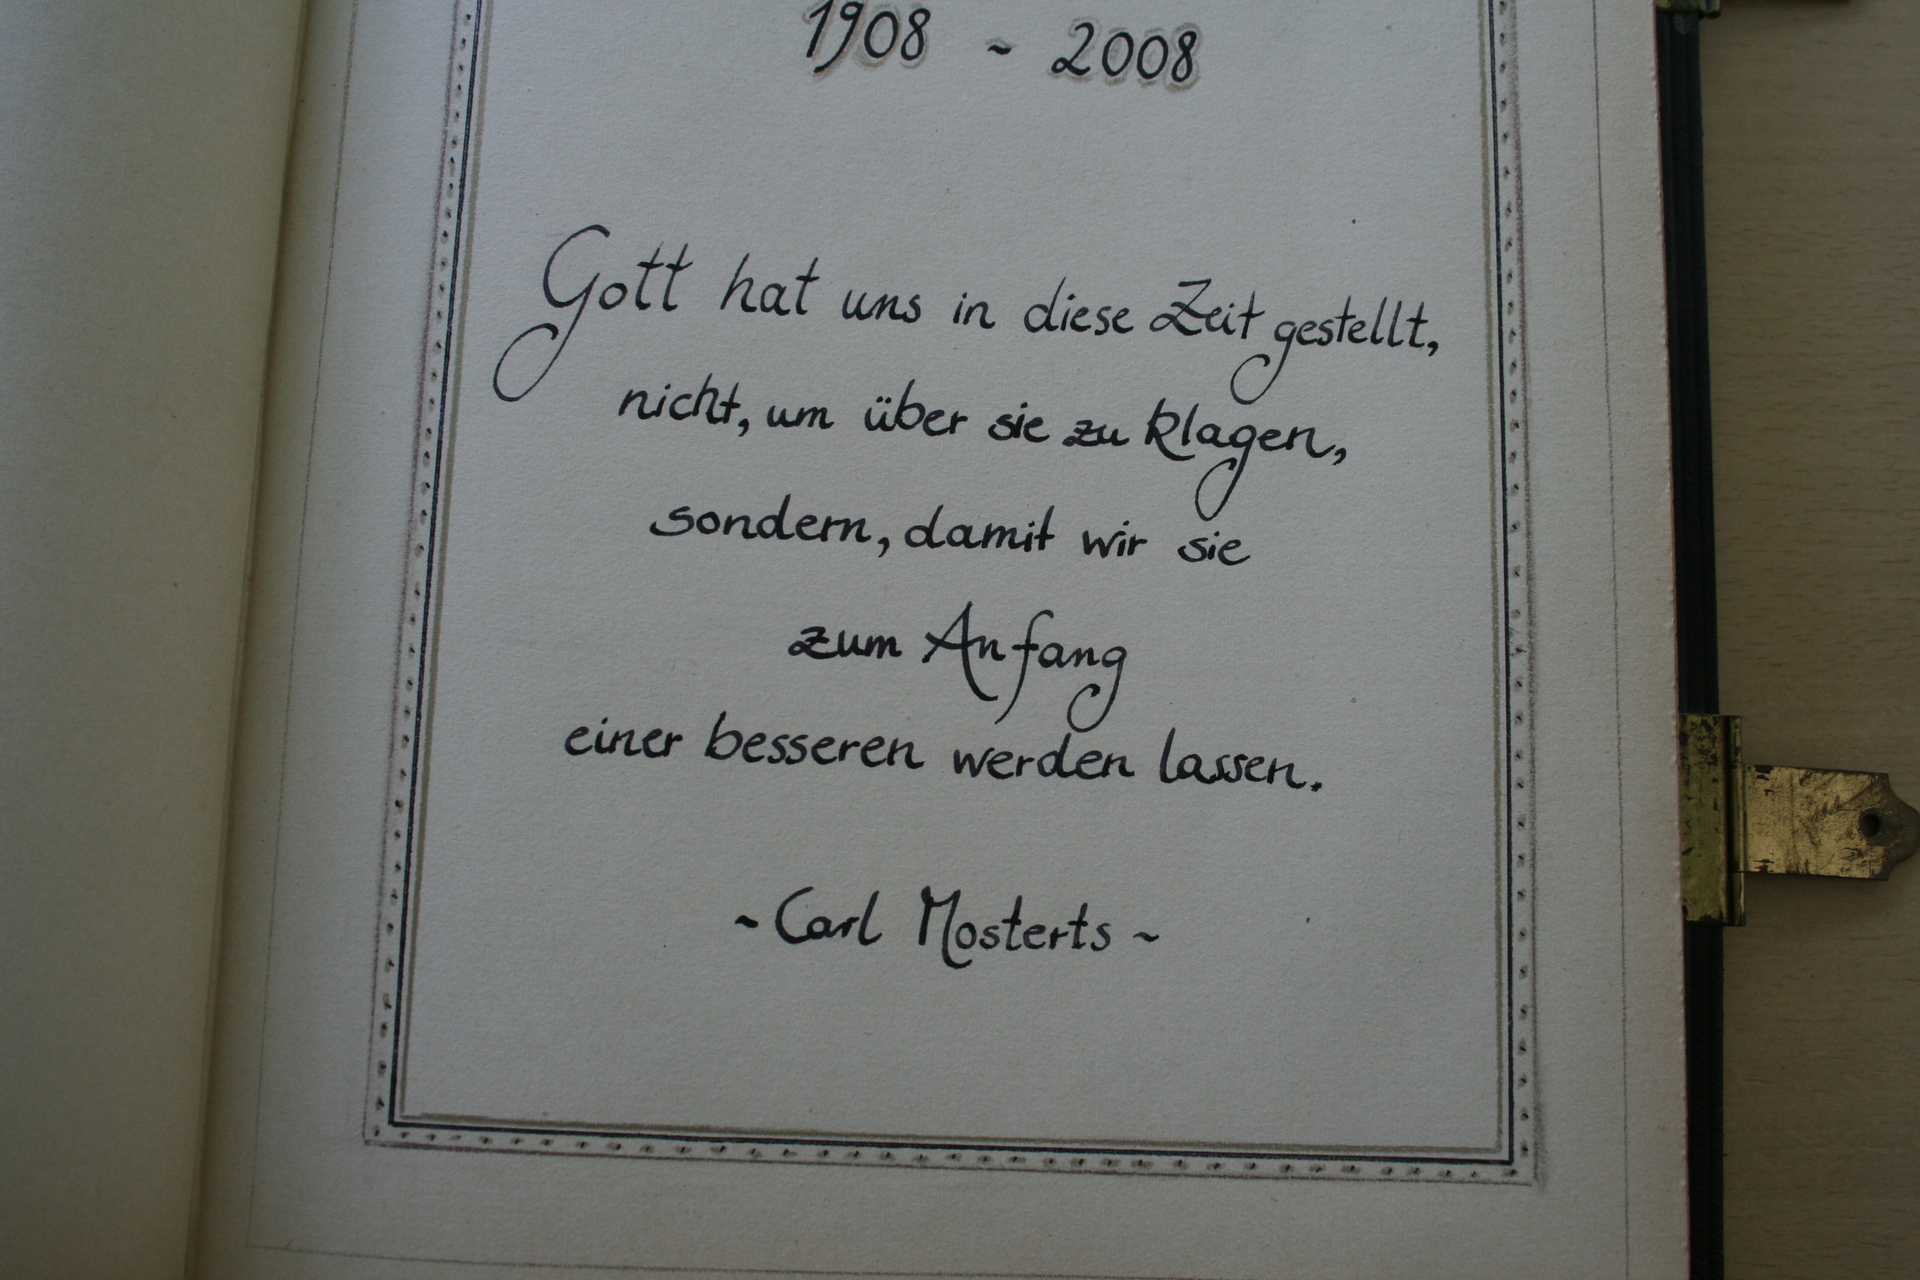 1908 ~ 2008
Gott hat uns in diese Zeit gestellt,
nicht, um über sie zu klagen,
sondern, damit wir sie
zum Anfang
einer besseren werden lassen.
~ Carl Mosterts ~